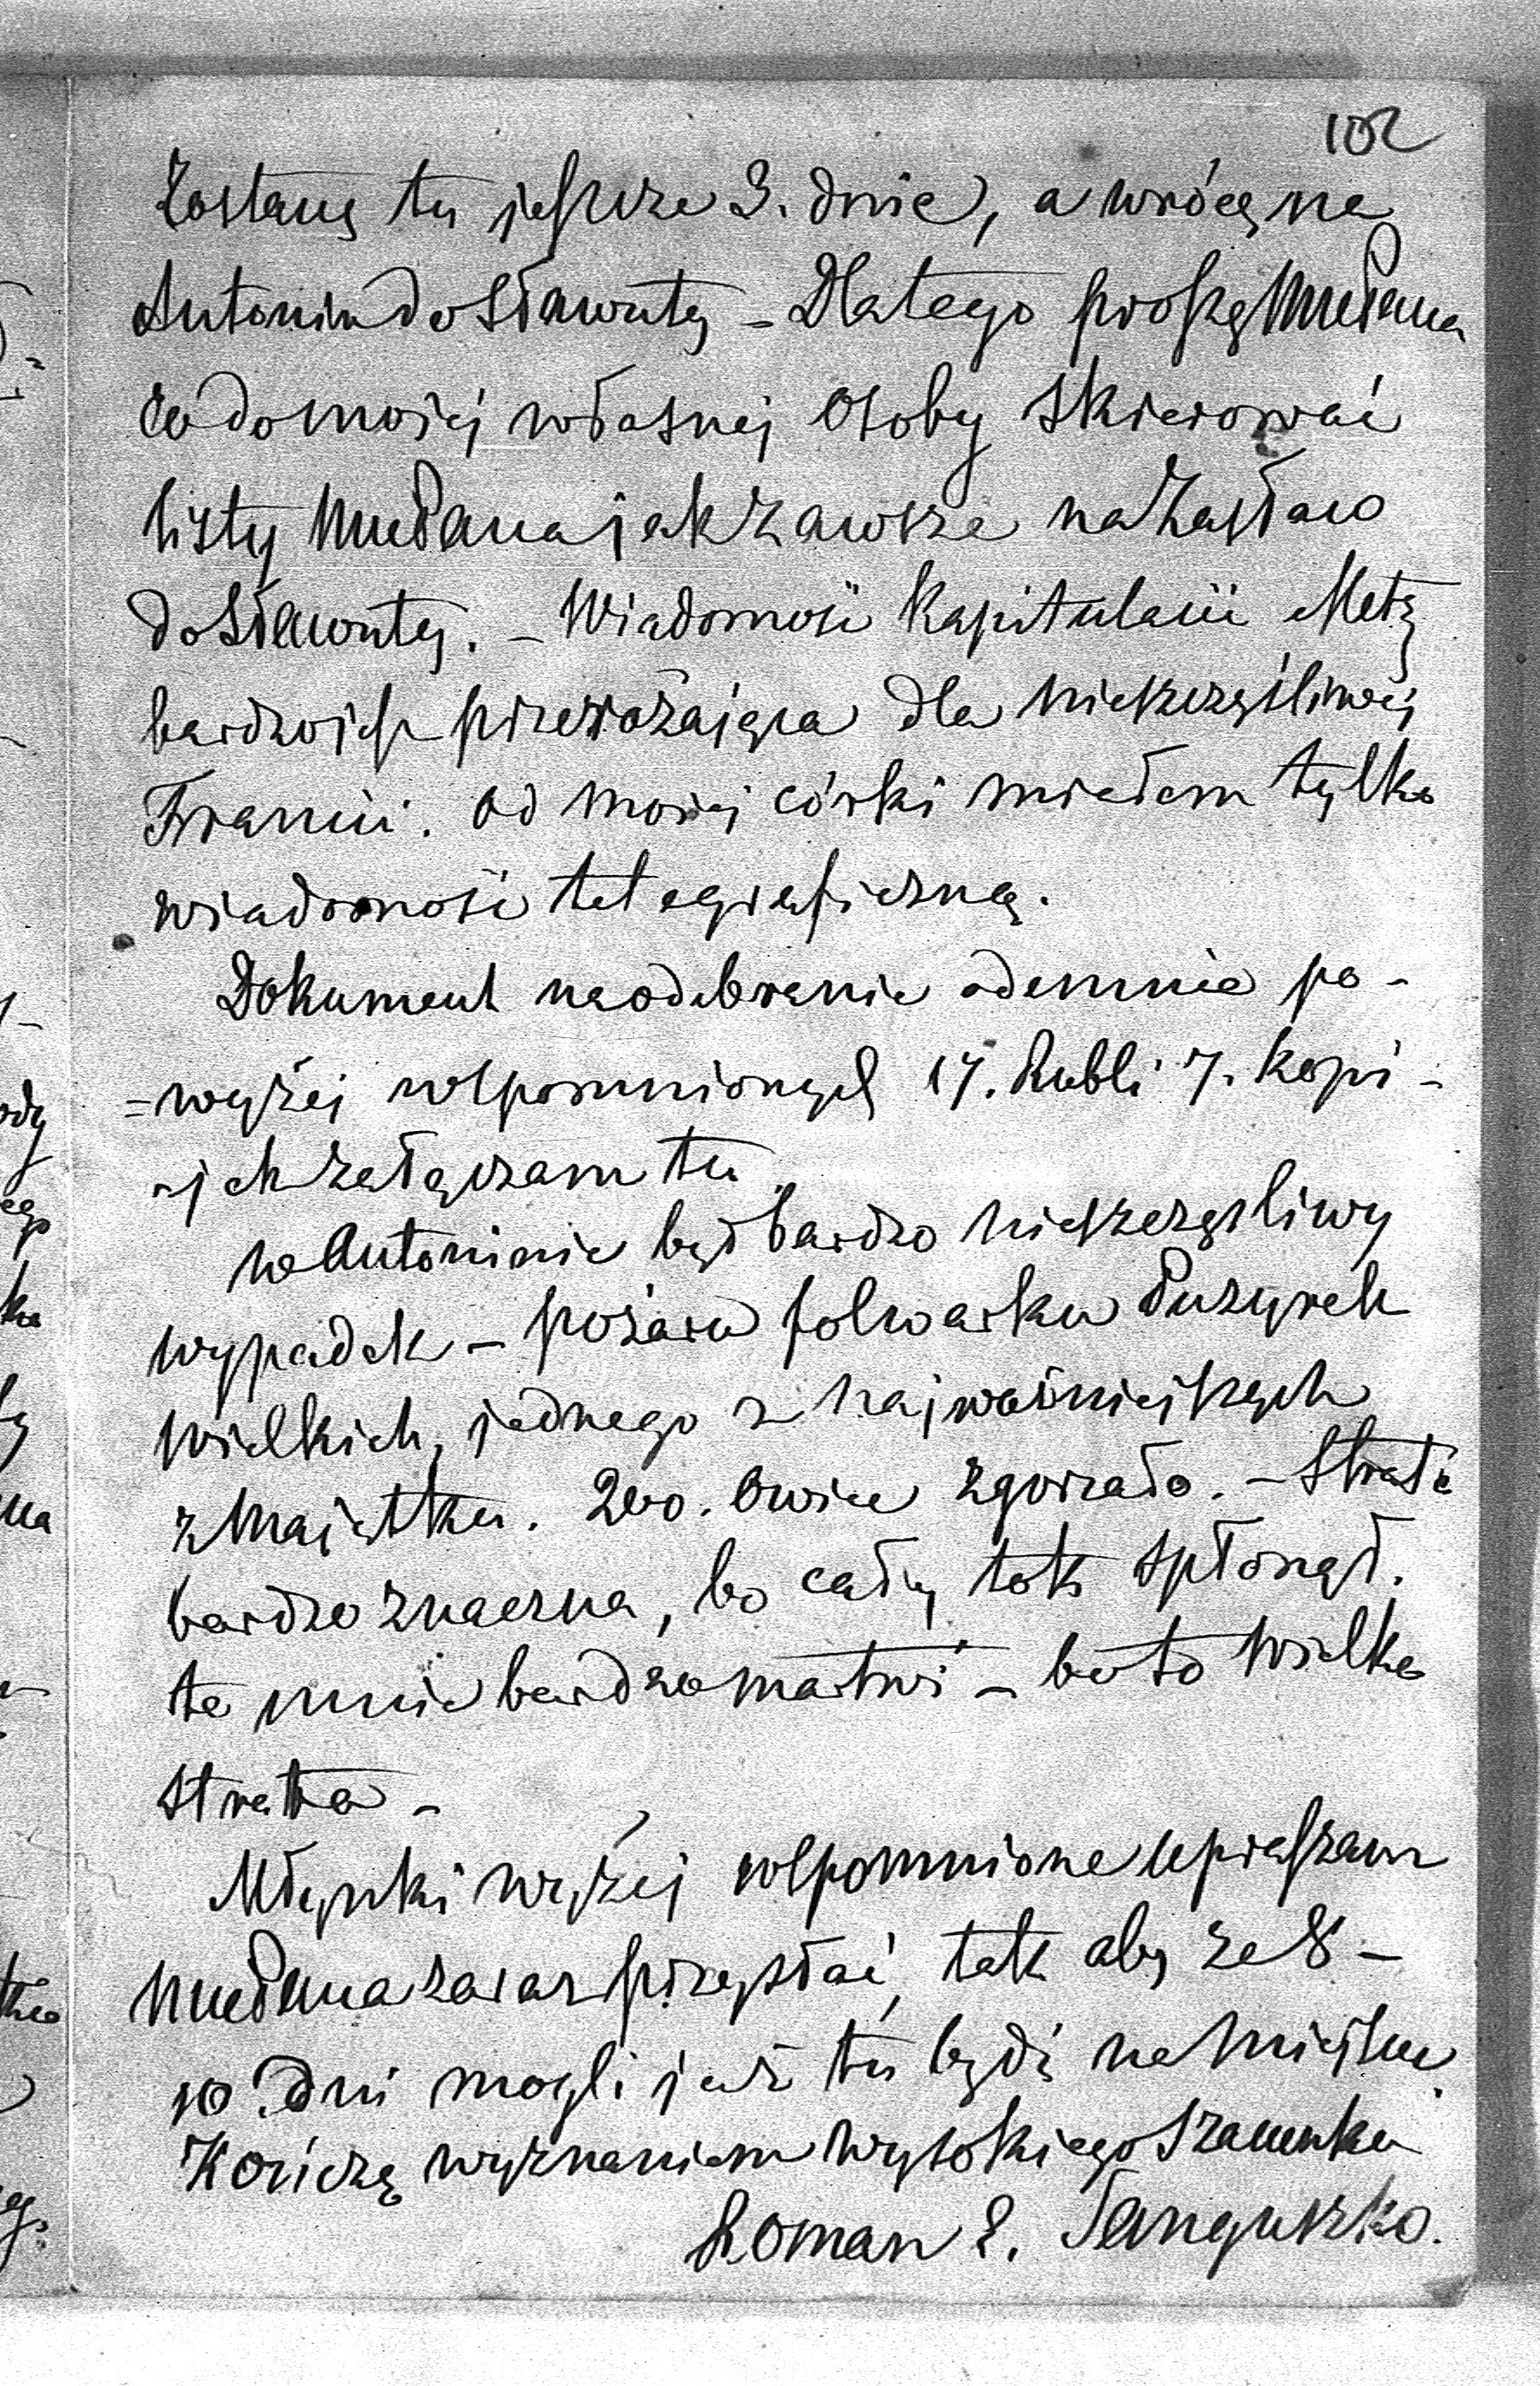 102
Zostanę tu jeszcze 3. dnie, a wrócę na
Antonin do Sławuty – Dlatego proszę WMćPana
co do mojej własnej osoby skierować
listy WMćPana jak zawsze na Zasław
do Sławuty. – Wiadomość kapitulacii Metz
bardzo jest przerażająca dla nieszczęśliwej
Francii. Od mojej córki miałem tylko
wiadomość telegraficzną.
Dokument na odebranie odemnie po-
=wyżej wspomnionych 17. Rubli 7. kopi-
-jek załączam tu
w Antoninie był bardzo nieszczęsliwy
wypadek – pożaru folwarku Puzyrek
Wielkich, jednego z najważniejszych
z Majątku. 200. Owiec zgorzało. – Strata
bardzo znaczna, bo cały tok spłonął.
to mnie bardzo martwi – bo to wielka
strata –
Młynki wyżej wspomnione upraszam
WMćPana zaraz przysłać, tak aby za 8 –
10. Dni mogli już tu bydź na Miejscu.
Kończę wyznaniem wysokiego szacunku
Roman E. Sanguszko.